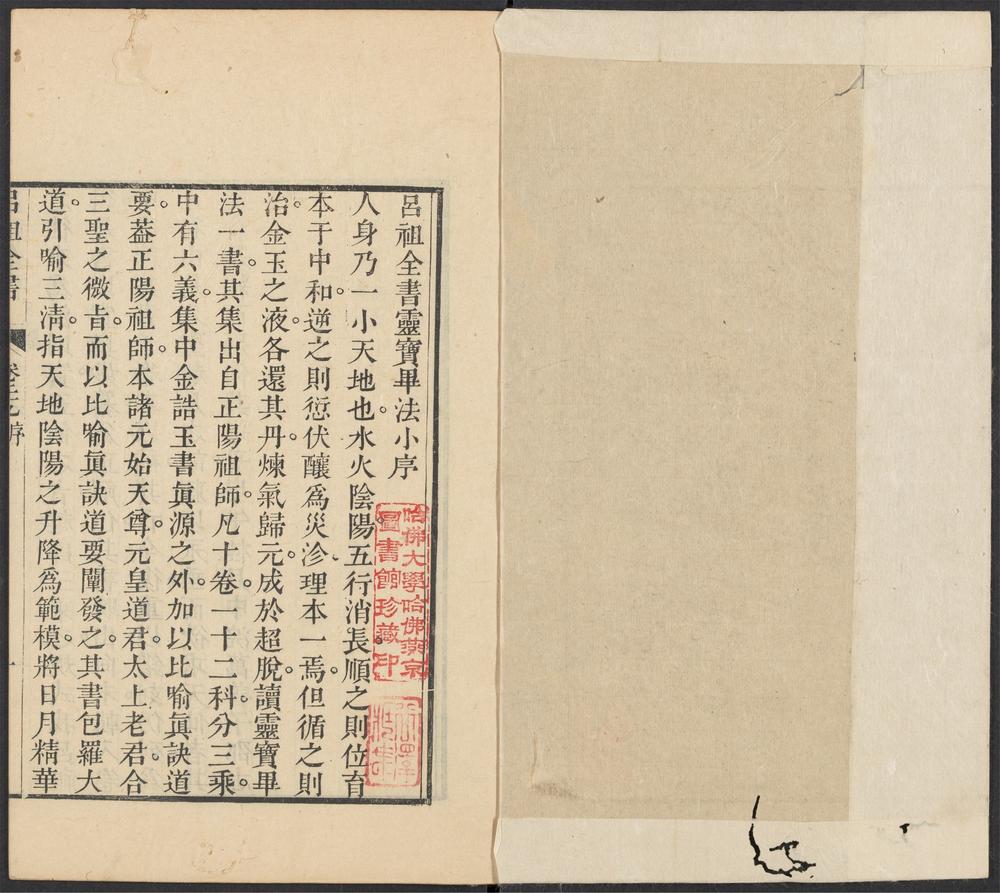 呂祖全書靈寶畢法小序
人身乃一小天地也。水火陰陽五行消長順之則位育
本于中和。逆之則愆伏釀為災沴。理本一焉。但循之則
治。金玉之液。各還其丹。煉氣歸元。成於超脫。讀靈寶畢
法一書。其集出自正陽祖師。凡十卷一十二科。分三乘。
中有六義。集中金誥玉書眞源之外。加以比喻眞訣道
要。葢正陽祖師。本諸元始天尊。元皇道君。太上老君。合
三聖之微旨。而以比喻眞訣道要闡發之。其書包羅大
道。引喻三清。指天地陰陽之升降為範模。將日月精華
呂祖全書
序
哈佛大學哈佛燕京
圖書館珍藏印